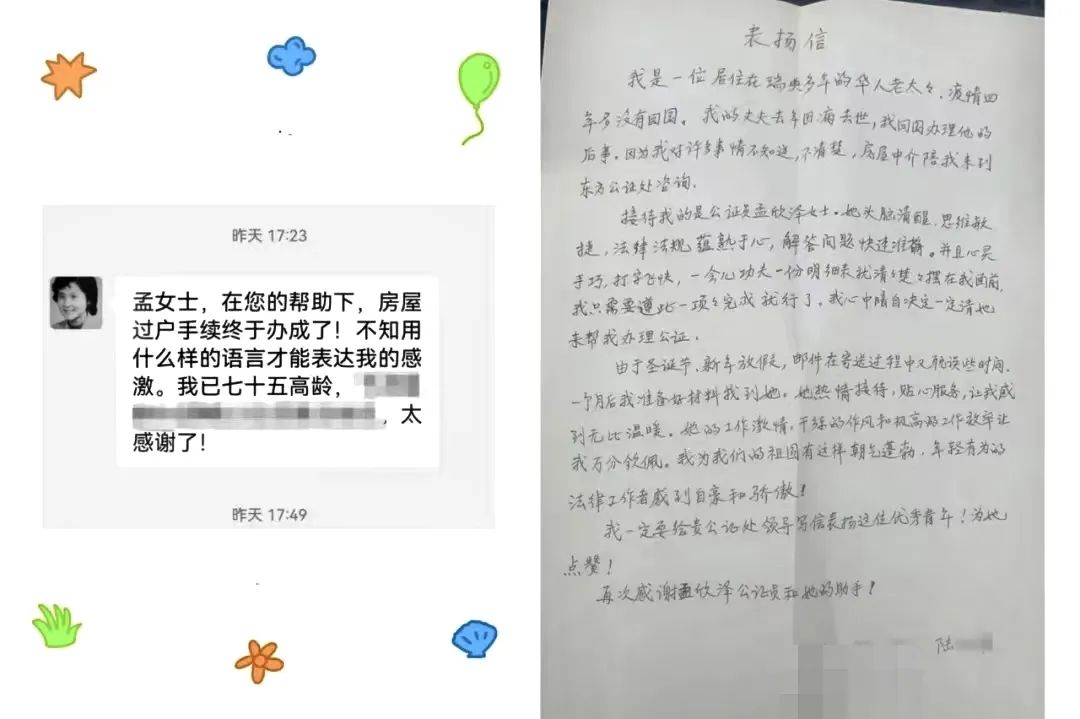 昨天 17:23
孟女士，在您的帮助下，房屋
过户手续终于办成了！不知用
什么样的语言才能表达我的感
激。我已七十五高龄，
，太
感谢了！
昨天 17:49
表扬信
我是一位居住在瑞典多年的华人老太々、疫情四
年多没有回国。我的丈夫去年因病去世，我回国办理他的
后事。因为我对许多事情不知道，不清楚，房屋中介陪我来到
东方公证处咨询。
接待我的是公证员孟欣泽女士。她头脑清醒、思维敏
捷，法律法规蕴熟于心，解答问题快速准确。并且心灵
手巧，打字飞快，一会儿功夫一份明细表就清々楚々摆在我面前，
我只需要遵此一项々完成就行了。我心中暗自决定一定请她
来帮我办理公证。
由于圣诞节、新年放假，邮件在寄送过程中又耽误些时间，
一个月后我准备好材料找到她。她热情接待，贴心服务，让我感
到无比温暖。她的工作激情，干练的作风和极高的工作效率让
我万分钦佩。我为我们的祖国有这样朝气蓬勃、年轻有为的
法律工作者感到自豪和骄傲！
我一定要给贵公证处领导写信表扬这位优秀青年！为她
点赞！
再次感谢孟欣泽公证员和她的助手！
陆